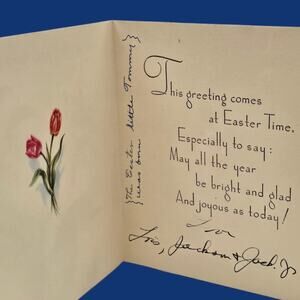 {The Easter little Tommy}
{was born}
This greeting comes
at Easter Time,
Especially to say:
May all the year
be bright and glad
And joyous as today!
Lois, Jackson & Jack. Jr